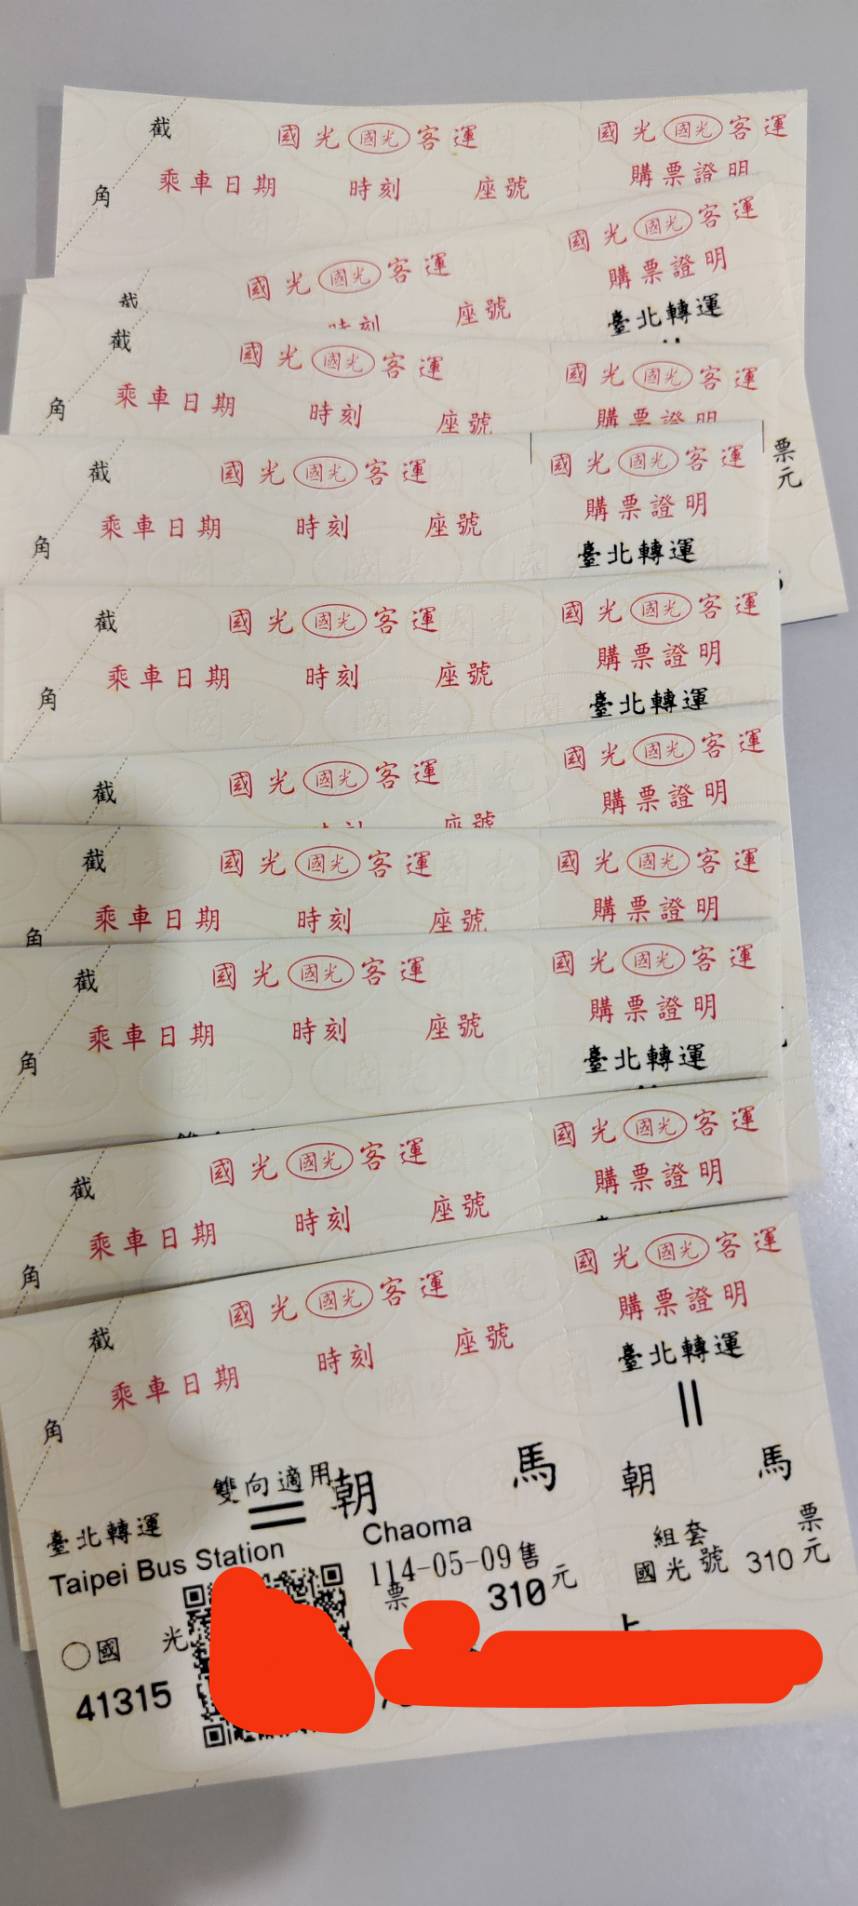 截 國光 國光 客運 國光 國光 客運
角 乘車日期 時刻 座號 購票證明
國光 國光 客運 國光 國光 客運
截 時刻 座號 購票證明
臺北轉運
截 國光 國光 客運 國光 國光 客運
角 乘車日期 時刻 座號 購票證明
票
元
截 國光 國光 客運 國光 國光 客運
角 乘車日期 時刻 座號 購票證明
臺北轉運
截 國光 國光 客運 國光 國光 客運
角 乘車日期 時刻 座號 購票證明
臺北轉運
截 國光 國光 客運 國光 國光 客運
座號 購票證明
截 國光 國光 客運 國光 國光 客運
角 乘車日期 時刻 座號 購票證明
截 國光 國光 客運 國光 國光 客運
角 乘車日期 時刻 座號 購票證明
臺北轉運
截 國光 國光 客運 國光 國光 客運
角 乘車日期 時刻 座號 購票證明
截 國光 國光 客運 國光 國光 客運
角 乘車日期 時刻 座號 購票證明
臺北轉運
雙向適用
臺北轉運 = 朝馬 朝馬
Taipei Bus Station Chaoma 組套 票
114-05-09售 國光號 310元
票 310元
○國光
41315